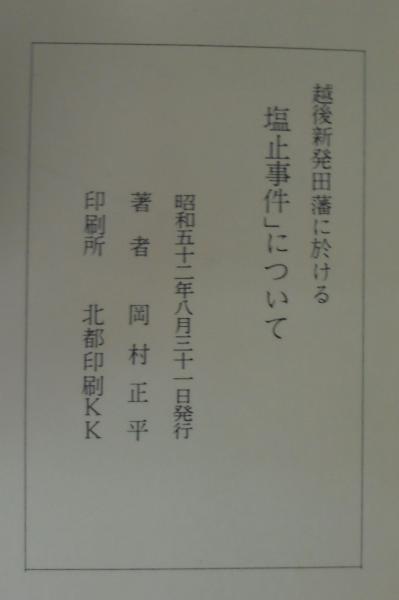 越後新発田藩に於ける
塩止事件」について
昭和五十二年八月三十一日発行
著者 岡村正平
印刷所 北都印刷KK